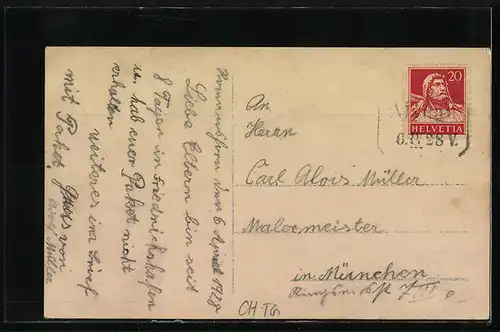 Romanshorn den 6 April 1928
Liebe Eltern bin seit
8 Tagen in Friedrichshafen
u. hab euer Paket nicht
erhalten
weiteres im Brief
mit Paket. Gruss von
Müller
An
Herrn
Carl Alois Müller
Malermeister
in München
20
HELVETIA
28 V.
CH TG